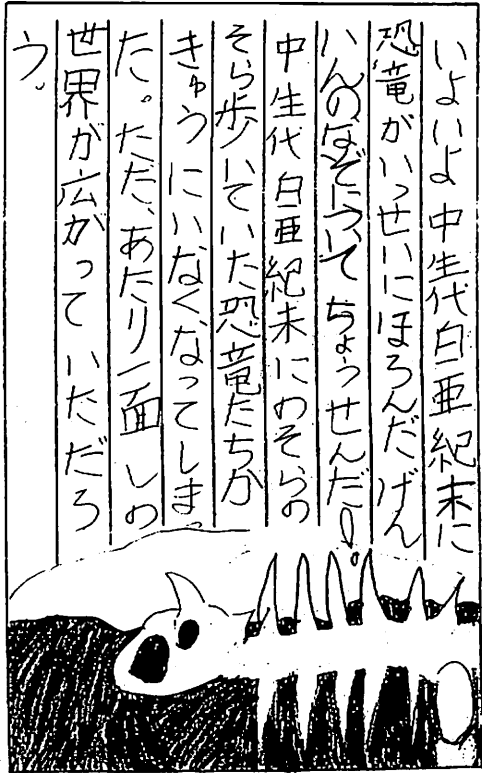 いよいよ中生代白亜紀末に
恐竜がいっせいにほろんだげん
いんのなぞについてちょうせんだ!。
中生代白亜紀末にのそらの
そら歩いていた恐竜たちが
きゅうにいなくなってしまっ
た。ただ、あたり一面しの
世界が広がっていただろ
う。